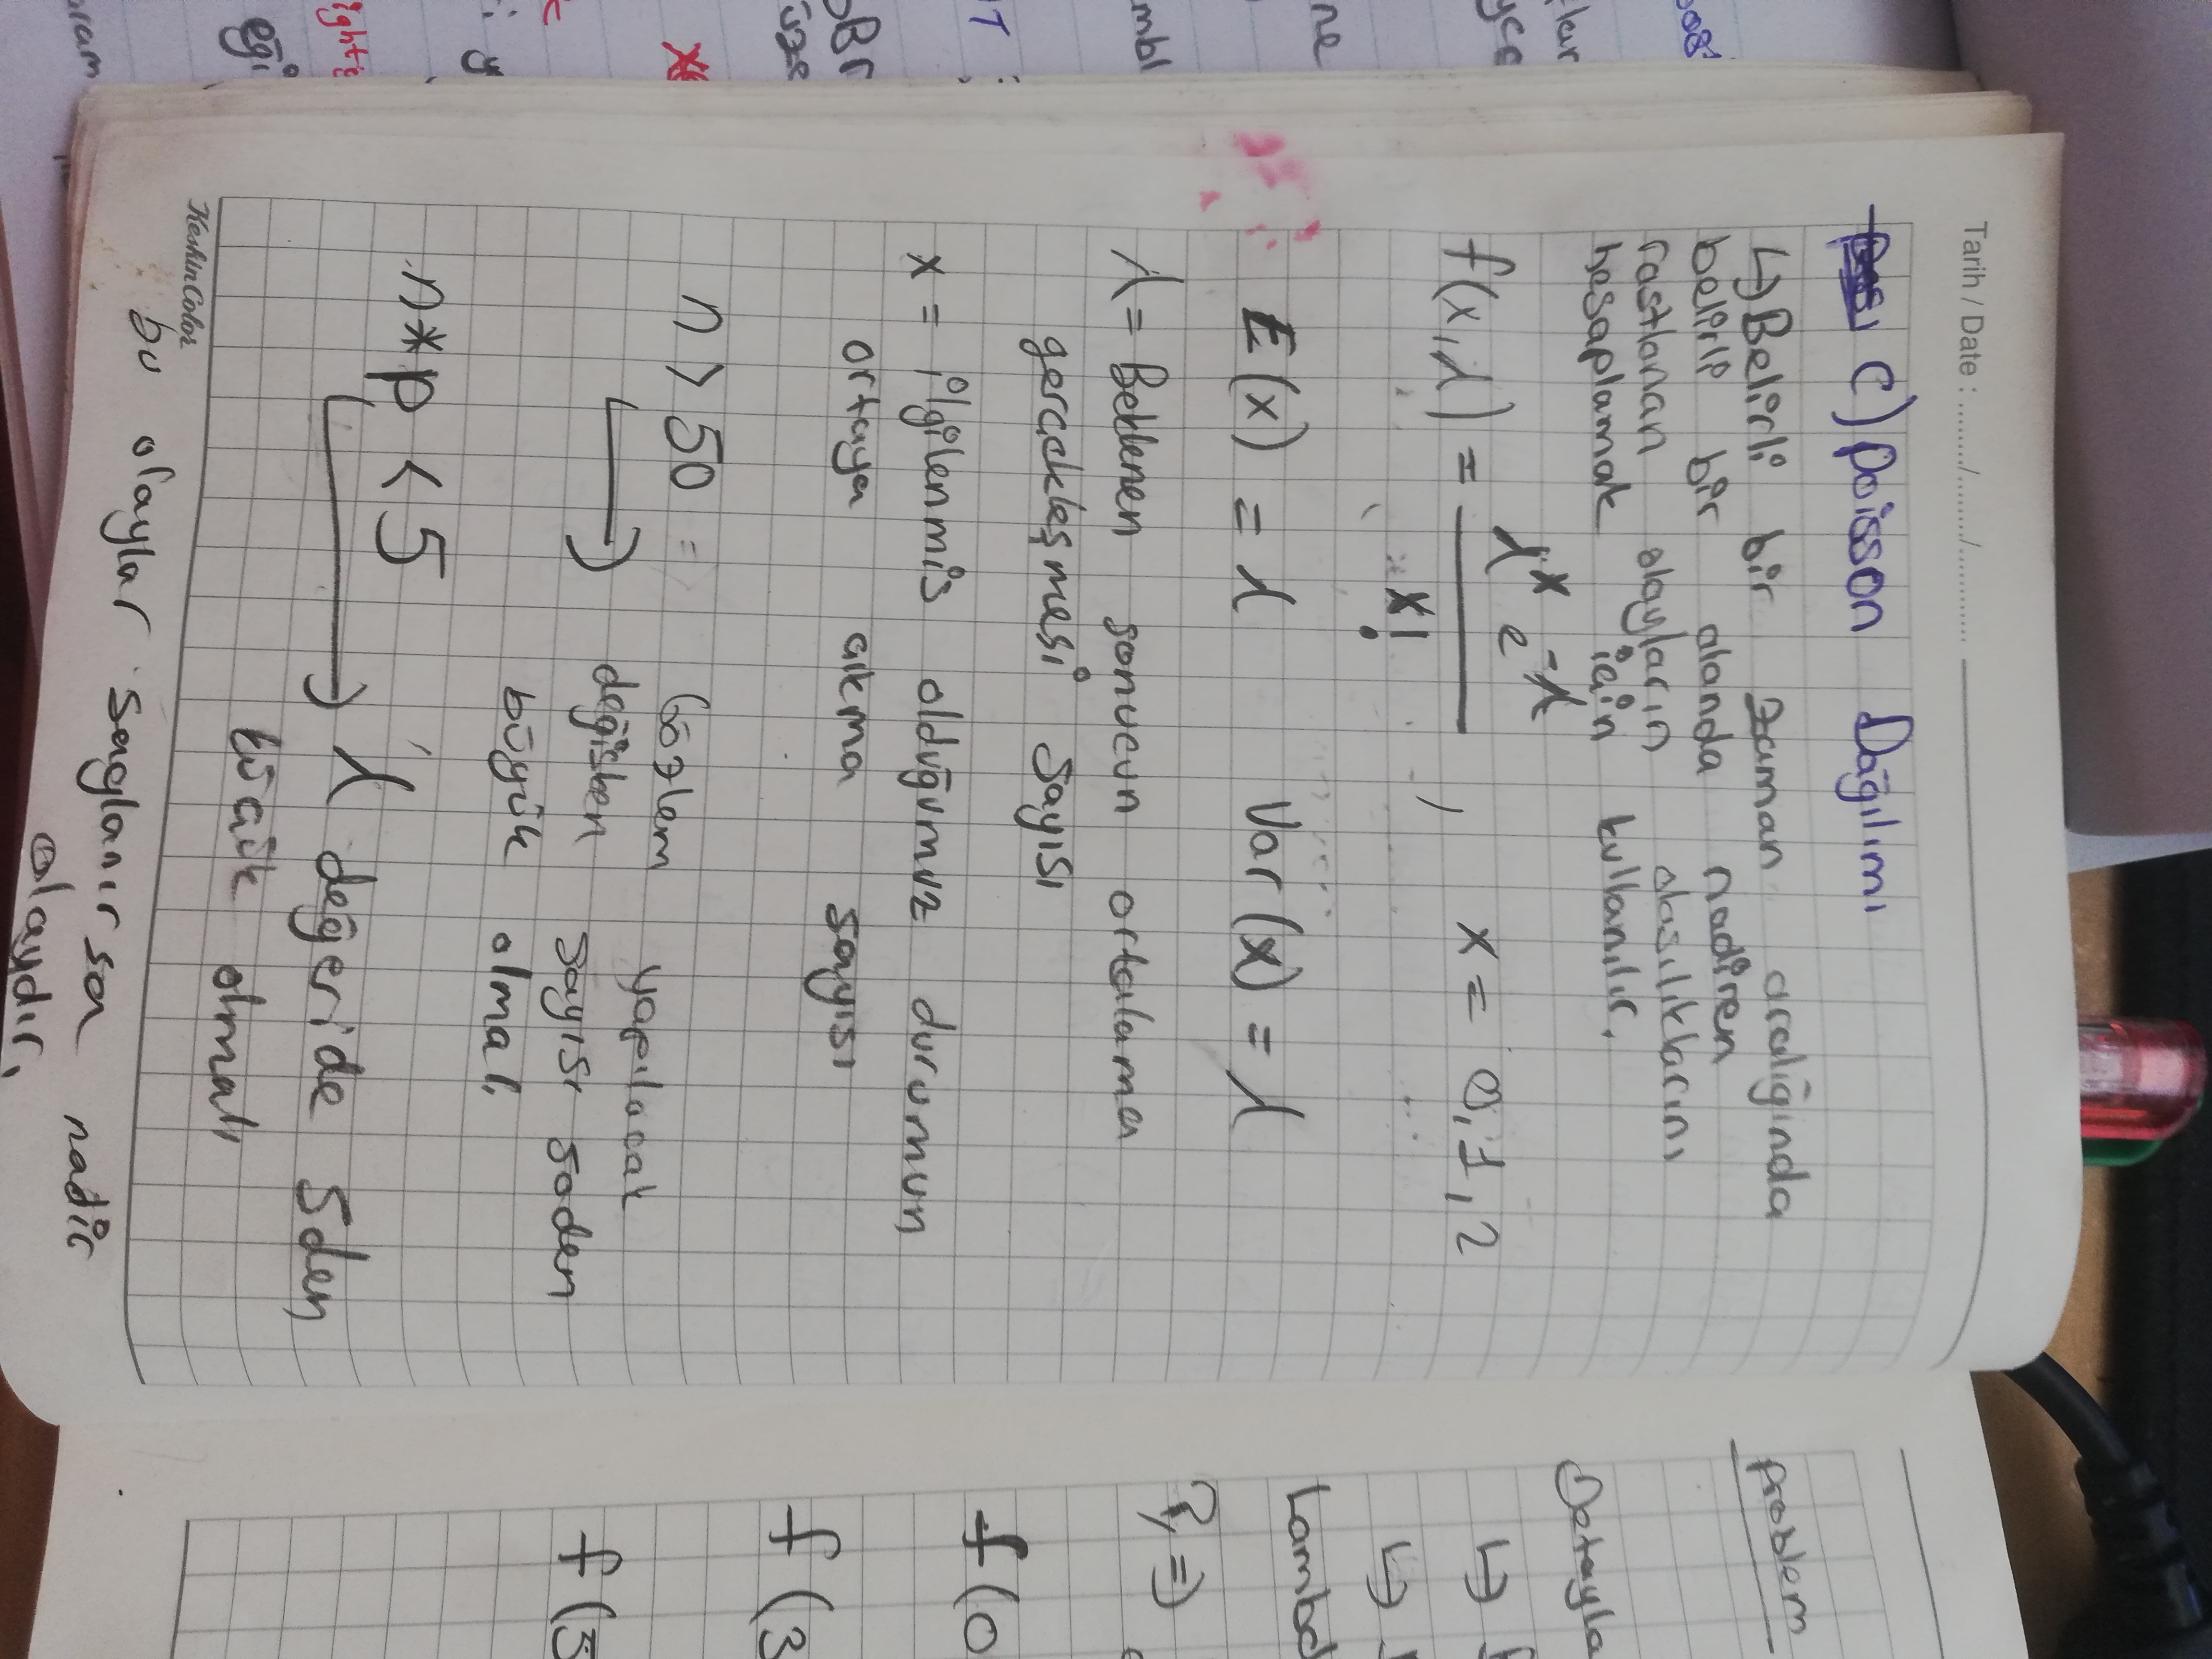 Tarih / Date : ......../......../............
C) Poisson Dağılımı
↳ Belirli bir zaman aralığında
belirli bir alanda nadiren
rastlanan olayların olasılıklarını
hesaplamak için kullanılır.
f(x,λ) = λ^x e^-λ / x! , x = 0,1,2
E(x) = λ Var(x) = λ
λ = Beklenen sonucun ortalama
gerçekleşmesi sayısı
x = ilgilenmis olduğumuz durumun
ortaya çıkma sayısı
n > 50 = Gözlem yapılacak
değisken sayısı 50den
büyük olmalı
n*p < 5
λ değeride 5den
küçük olmalı
KeskinColor
bu olaylar saglanırsa nadir
olaydır.
problem
Lambd
? =>
f(0
f(3
f(5